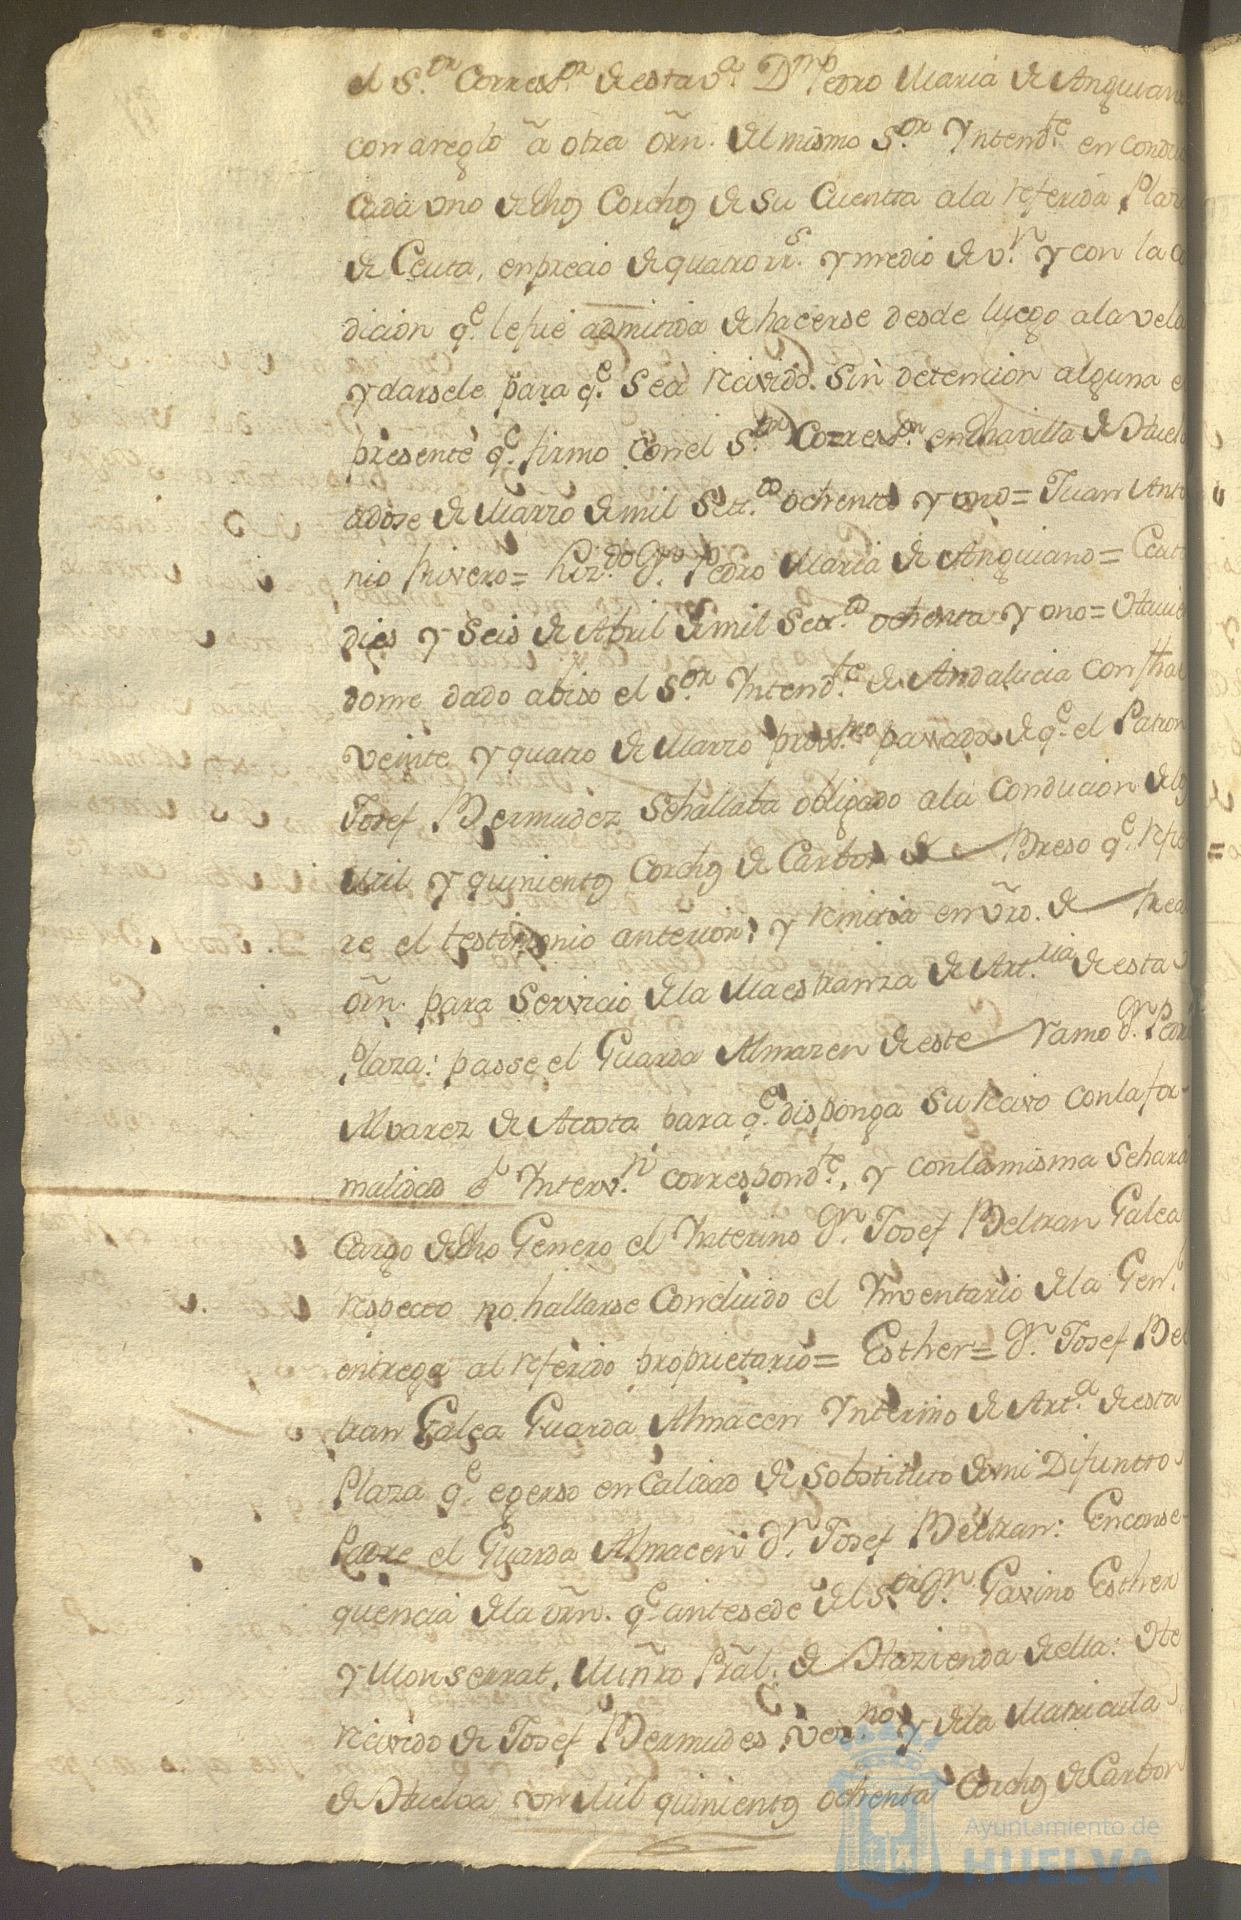 el S.or Corres.or de esta v.a D.n Pedro Maria de Anquiano
con areglo â otra orñ. del mismo S.or Yntend.te en condu
cada uno de dhos Corchos de su Cuentta a la referida Plaz
de Ceuta, en precio de quatro rr.s y medio de v.n y con la
dicion q.e le fué admitida de hacerse desde luego a la vela
y darsele para q.e sea recivido. sin detencion alguna e
presente q.e firmo con el S.or Corres.or en dha villa de Huel
a dose de Marzo de mil Set.tos ochenta y uno = Juan Anto
nio rivero = Liz.do D.n Pedro Maria de Anquiano = Ceuta
dies y Seis de Abril de mil Set.tos ochenta y uno = Havien
dome dado abiso el S.or Yntend.te de Andalucia con fha
veinte y quatro de Marzo prox.mo passado de q.e el Patron
Josef Bermudez se hallaba obligado a la Conducion de los
Mil y quinientos Corchos de Carbon de Breso q.e refie
re el testimonio anterior, y remitia en vrõ. de Rea
orñ. para servicio de la Maestranza de Art.lia de esta
Plaza: passe el Guarda Almazen de este ramo D.n Pedr
Alvarez de Acosta para q.e disponga su recivo con la for-
malidad é Ynterv.n correspond.te, y con la misma se hará
cargo de dho Genero el Ynterino D.n Josef Beltran Galea
respecto no hallarse Concluido el Ynventario de la Gen.l
entrega al referido proprietario = Esther = D.n Josef Bel
tran Galea Guarda Almacen Ynterino de Art.a de esta
Plaza q.e egerso en Calidad de Sobstituto de mi Difuntto
Padre el Guarda Almacen D.n Josef Beltran: En conse-
quencia de la orñ. q.e antesede del S.or D.n Gavino Esther
y Monserrat, Miñro Prãl. de Hazienda de ella: He
recivido de Josef Bermudes vez.no y de la Matricula
de Huelva mil quinientos ochenta Corchos de Carbon
Ayuntamiento de
HUELVA